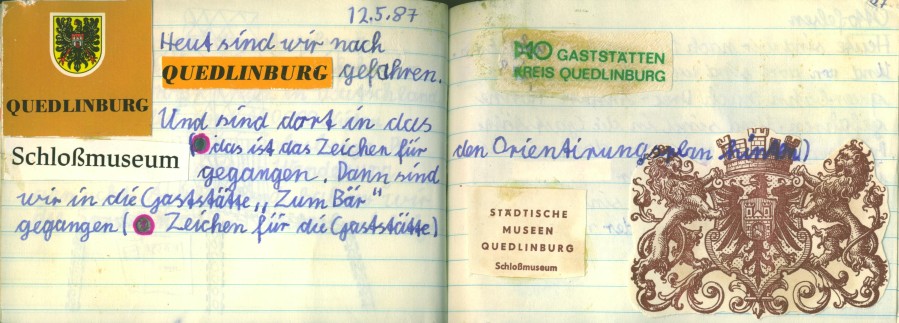 12.5.87
Heut sind wir nach
QUEDLINBURG gefahren.
QUEDLINBURG
Und sind dort in das
Schloßmuseum
(das ist das Zeichen für den Orientirungsplan hinten)
gegangen. Dann sind
wir in die Gaststätte „Zum Bär"
gegangen ( Zeichen für die Gaststätte)
HO GASTSTÄTTEN
KREIS QUEDLINBURG
STÄDTISCHE
MUSEEN
QUEDLINBURG
Schloßmuseum